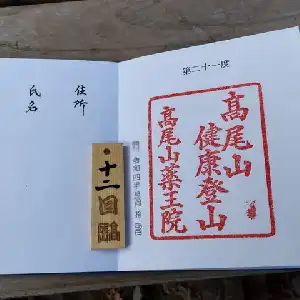 第二十一度
高尾山
健康登山
高尾山薬王院
住所
氏名
十二回